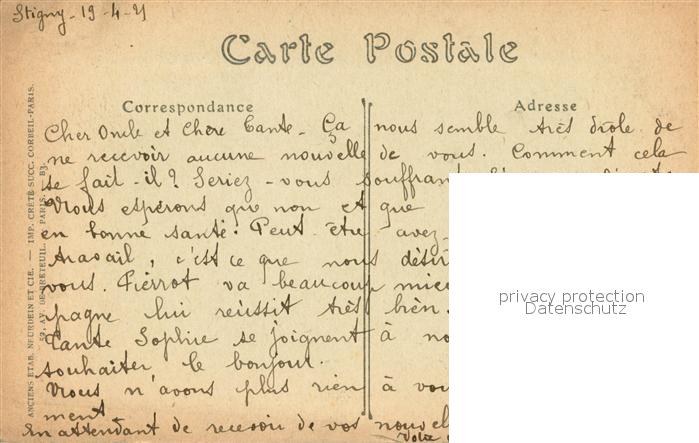 Stigny - 19-4-21
Carte Postale
Correspondance
Adresse
Cher Oncle et Chère Tante - Ça nous semble très drôle de
ne recevoir aucune nouvelle de vous. Comment cela
se fait-il ? Seriez-vous
Nous espérons que non et que
en bonne santé. Peut être avez-
travail, c'est ce que nous
vous. Pierrot va beaucoup
pagne lui réussit très bien.
Tante Sophie se joignent à
souhaiter le bonjour.
Nous n'avons plus rien à
ment
En attendant de recevoir de vos
Votre
ANCIENS ETAB. NEURDEIN ET CIE. — IMP. CRÉTÉ SUCC. CORBEIL-PARIS.
52, AV. DE BRETEUIL. PARIS. B3.
privacy protection
Datenschutz